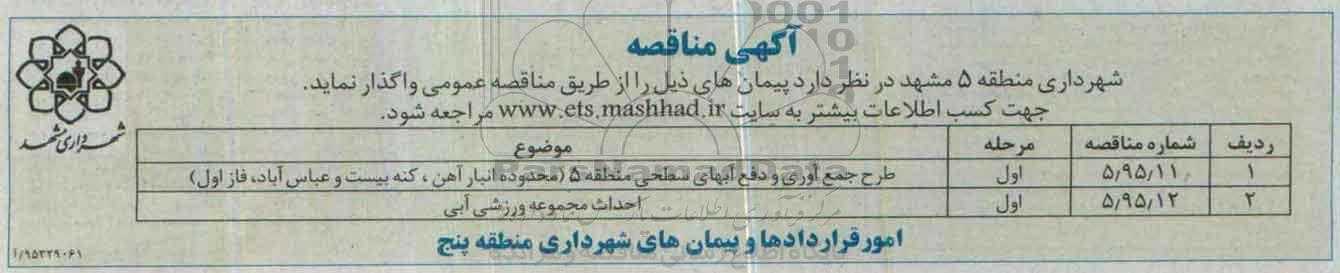 آگهی مناقصه
شهرداری منطقه ۵ مشهد در نظر دارد پیمان های ذیل را از طریق مناقصه عمومی واگذار نماید.
جهت کسب اطلاعات بیشتر به سایت www.ets.mashhad.ir مراجعه شود.
شهرداری مشهد
ردیف شماره مناقصه مرحله موضوع
۱ ۵٫۹۵٫۱۱ اول طرح جمع آوری و دفع آبهای سطحی منطقه ۵ (محدوده انبار آهن ، کنه بیست و عباس آباد، فاز اول)
۲ ۵٫۹۵٫۱۲ اول احداث مجموعه ورزشی آبی
امور قراردادها و پیمان های شهرداری منطقه پنج
۹۵۳۲۹۰۶۱/آ
ParsNamadData